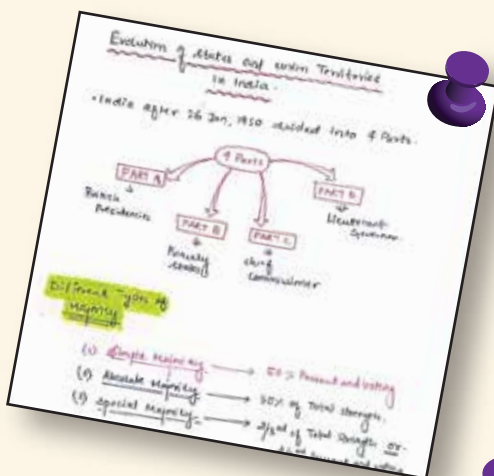 Evolution of States and union Territories
in India.
• India after 26 Jan, 1950 divided into 4 Parts.
4 Parts
PART A
PART B
PART C
PART D
British
Presidencies
Princely
States
chief
Commissioner
Lieutenant
Governor
Different Types of
Majority
(1) Simple Majority → 50% Present and voting
(2) Absolute Majority → 50% of Total strength.
(3) Special Majority → 2/3rd of Total Strength or
present and